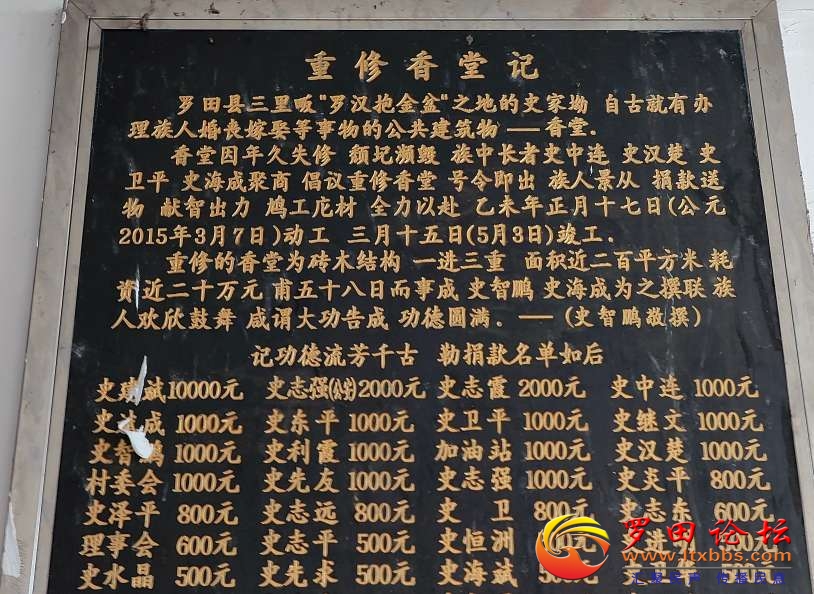 重修香堂记
罗田县三里畈"罗汉抱金盆"之地的史家坳 自古就有办
理族人婚丧嫁娶等事物的公共建筑物——香堂.
香堂因年久失修 颓圮濒毁 族中长者史中连 史汉楚 史
卫平 史海成聚商 倡议重修香堂 号令即出 族人景从 捐款送
物 献智出力 鸠工庀材 全力以赴 乙未年正月十七日(公元
2015年3月7日)动工 三月十五日(5月3日)竣工.
重修的香堂为砖木结构 一进三重 面积近二百平方米 耗
资近二十万元 甫五十八日而事成 史智鹏 史海成为之撰联 族
人欢欣鼓舞 咸谓大功告成 功德圆满.——(史智鹏敬撰)
记功德流芳千古 勒捐款名单如后
史建斌10000元 史志强 2000元 史志霞 2000元 史中连 1000元
史 成 1000元 史东平 1000元 史卫平 1000元 史继文 1000元
史智鹏 1000元 史利霞 1000元 加油站 1000元 史汉楚 1000元
村委会 1000元 史先友 1000元 史志强 1000元 史炎平 800元
史泽平 800元 史志远 800元 史 卫 800元 史志东 600元
理事会 600元 史志平 500元 史恒洲
史水晶 500元 史先求 500元 史海斌 500元 史卫平 500元
罗田论坛
www.ltxbbs.com